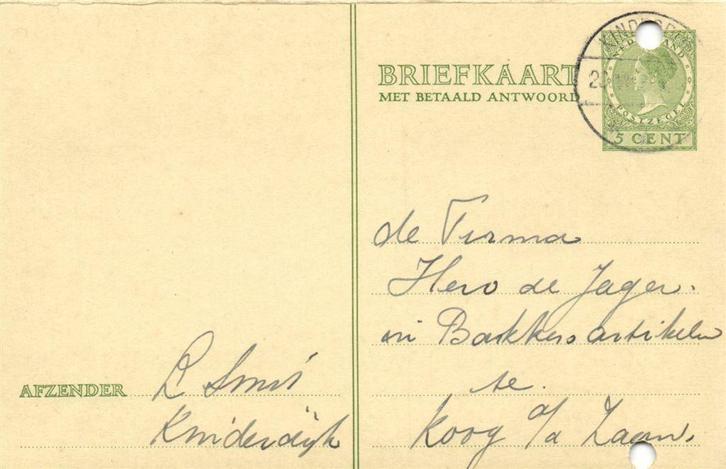 BRIEFKAART
MET BETAALD ANTWOORD
NEDERLAND
POSTZEGEL
5 CENT
de Firma
Hero de Jager.
in Bakkersartikelen
te.
Koog a/d Zaan.
AFZENDER
Kinderdijk